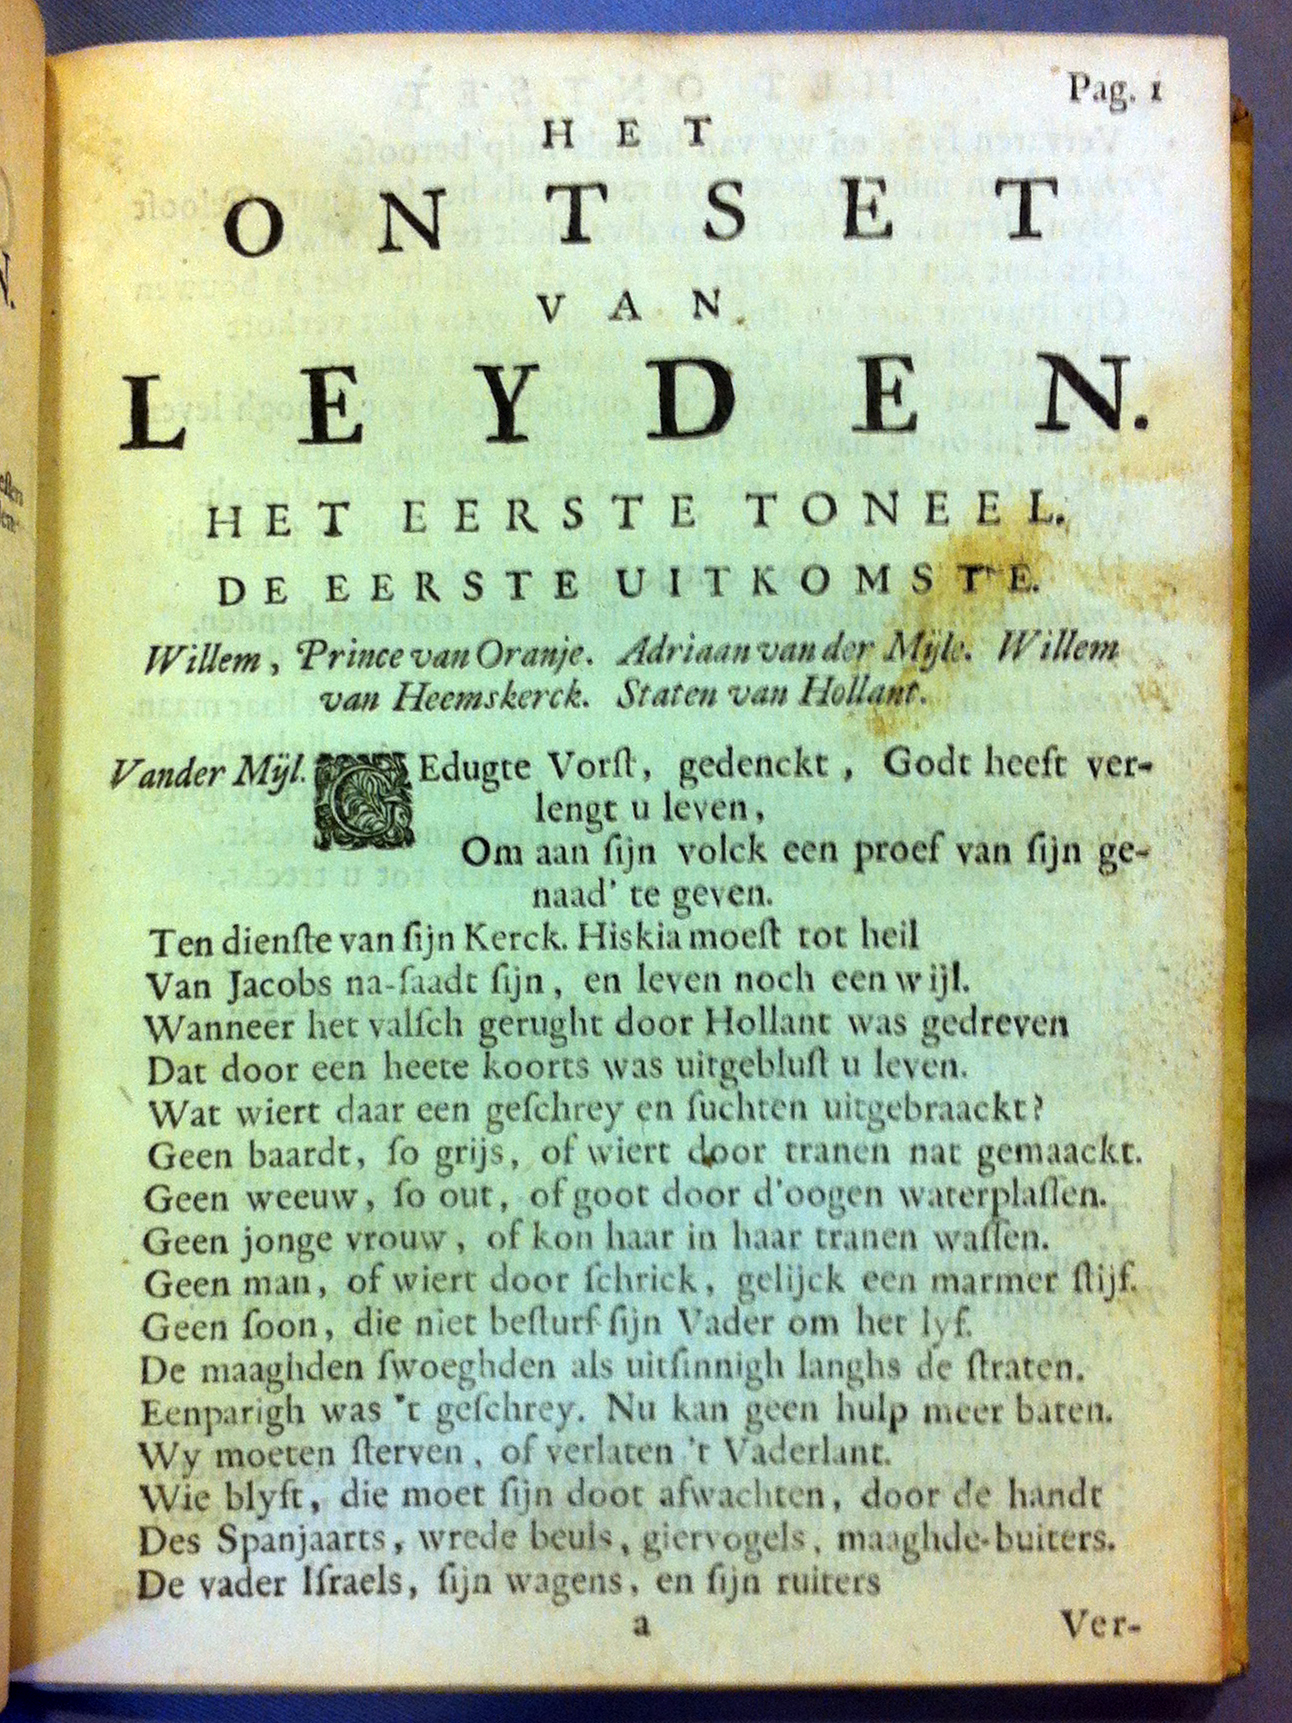 Pag. 1
HET
ONTSET
VAN
LEYDEN.
HET EERSTE TONEEL.
DE EERSTE UITKOMSTE.
Willem, Prince van Oranje. Adriaan van der Mijle. Willem
van Heemskerck. Staten van Hollant.
Vander Mÿl. GEdugte Vorſt, gedenckt, Godt heeft ver-
lengt u leven,
Om aan ſijn volck een proef van ſijn ge-
naad' te geven.
Ten dienſte van ſijn Kerck. Hiskia moeſt tot heil
Van Jacobs na-ſaadt ſijn, en leven noch een wijl.
Wanneer het valſch gerught door Hollant was gedreven
Dat door een heete koorts was uitgebluſt u leven.
Wat wiert daar een geſchrey en ſuchten uitgebraackt?
Geen baardt, ſo grijs, of wiert door tranen nat gemaackt.
Geen weeuw, ſo out, of goot door d'oogen waterplaſſen.
Geen jonge vrouw, of kon haar in haar tranen waſſen.
Geen man, of wiert door ſchrick, gelijck een marmer ſtijf.
Geen ſoon, die niet beſturf ſijn Vader om het lyf.
De maaghden ſwoeghden als uitſinnigh langhs de ſtraten.
Eenparigh was 't geſchrey. Nu kan geen hulp meer baten.
Wy moeten ſterven, of verlaten 't Vaderlant.
Wie blyft, die moet ſijn doot afwachten, door de handt
Des Spanjaarts, wrede beuls, giervogels, maaghde-buiters.
De vader Iſraels, ſijn wagens, en ſijn ruiters
a
Ver-